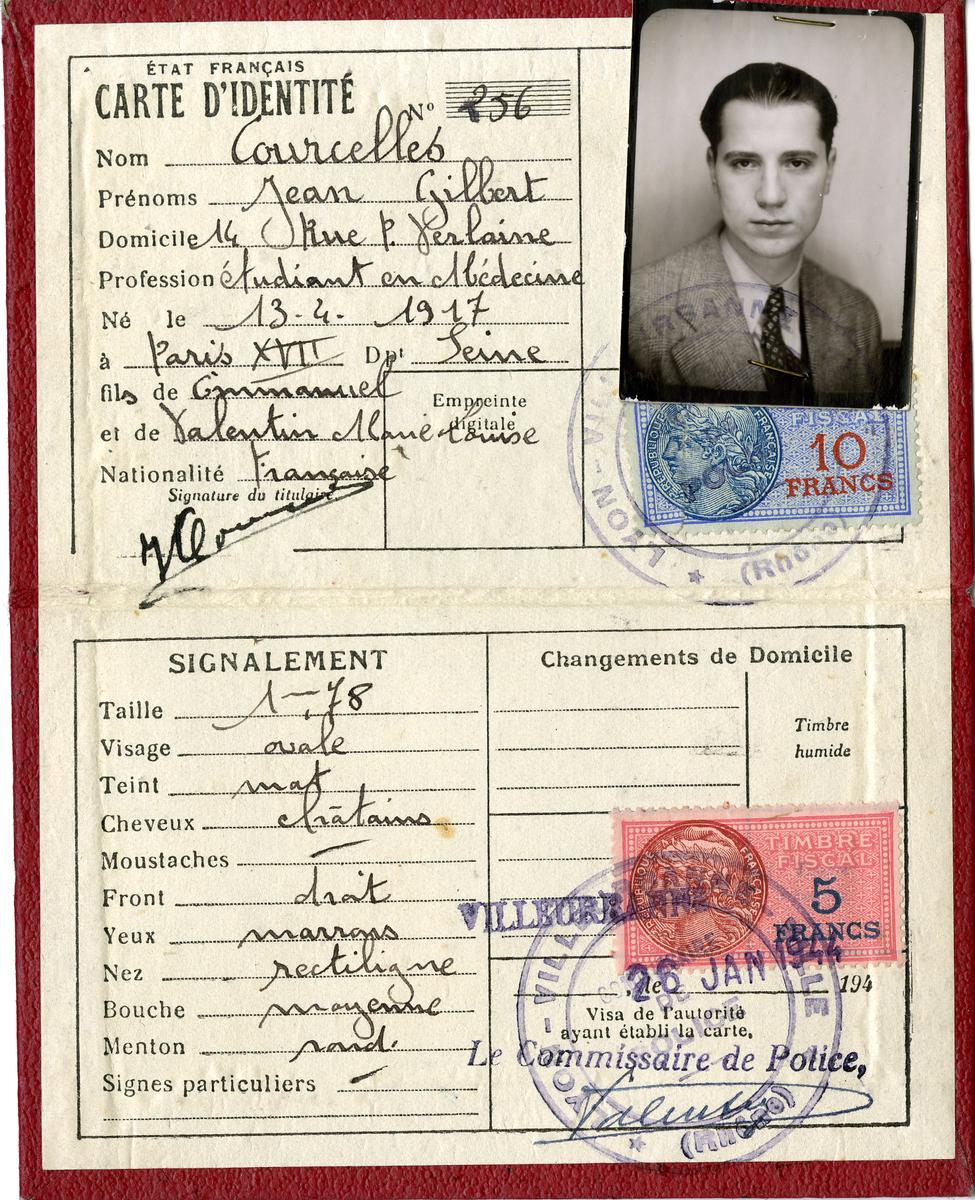 ÉTAT FRANÇAIS
CARTE D'IDENTITÉ
Nº 256
Nom Courcelles
Prénoms Jean Gilbert
Domicile 14 Rue P. Verlaine
Profession étudiant en Médecine
Né le 13-4- 1917
à Paris XVII Dpt Seine
fils de Emmanuel
et de Valentin Marie-Louise
Nationalité Française
Signature du titulaire
Empreinte
digitale
RÉPUBLIQUE FRANÇAISE
FISCAL
10
FRANCS
LYON - VILLEURBANNE
(Rhône)
SIGNALEMENT
Taille 1-78
Visage ovale
Teint mat
Cheveux châtains
Moustaches —
Front droit
Yeux marrons
Nez rectiligne
Bouche moyenne
Menton rond
Signes particuliers —
Changements de Domicile
Timbre
humide
TIMBRE
FISCAL
5
FRANCS
VILLEURBANNE
, le 26 JAN 1944 194
Visa de l'autorité
ayant établi la carte,
Le Commissaire de Police,
(Rhône)